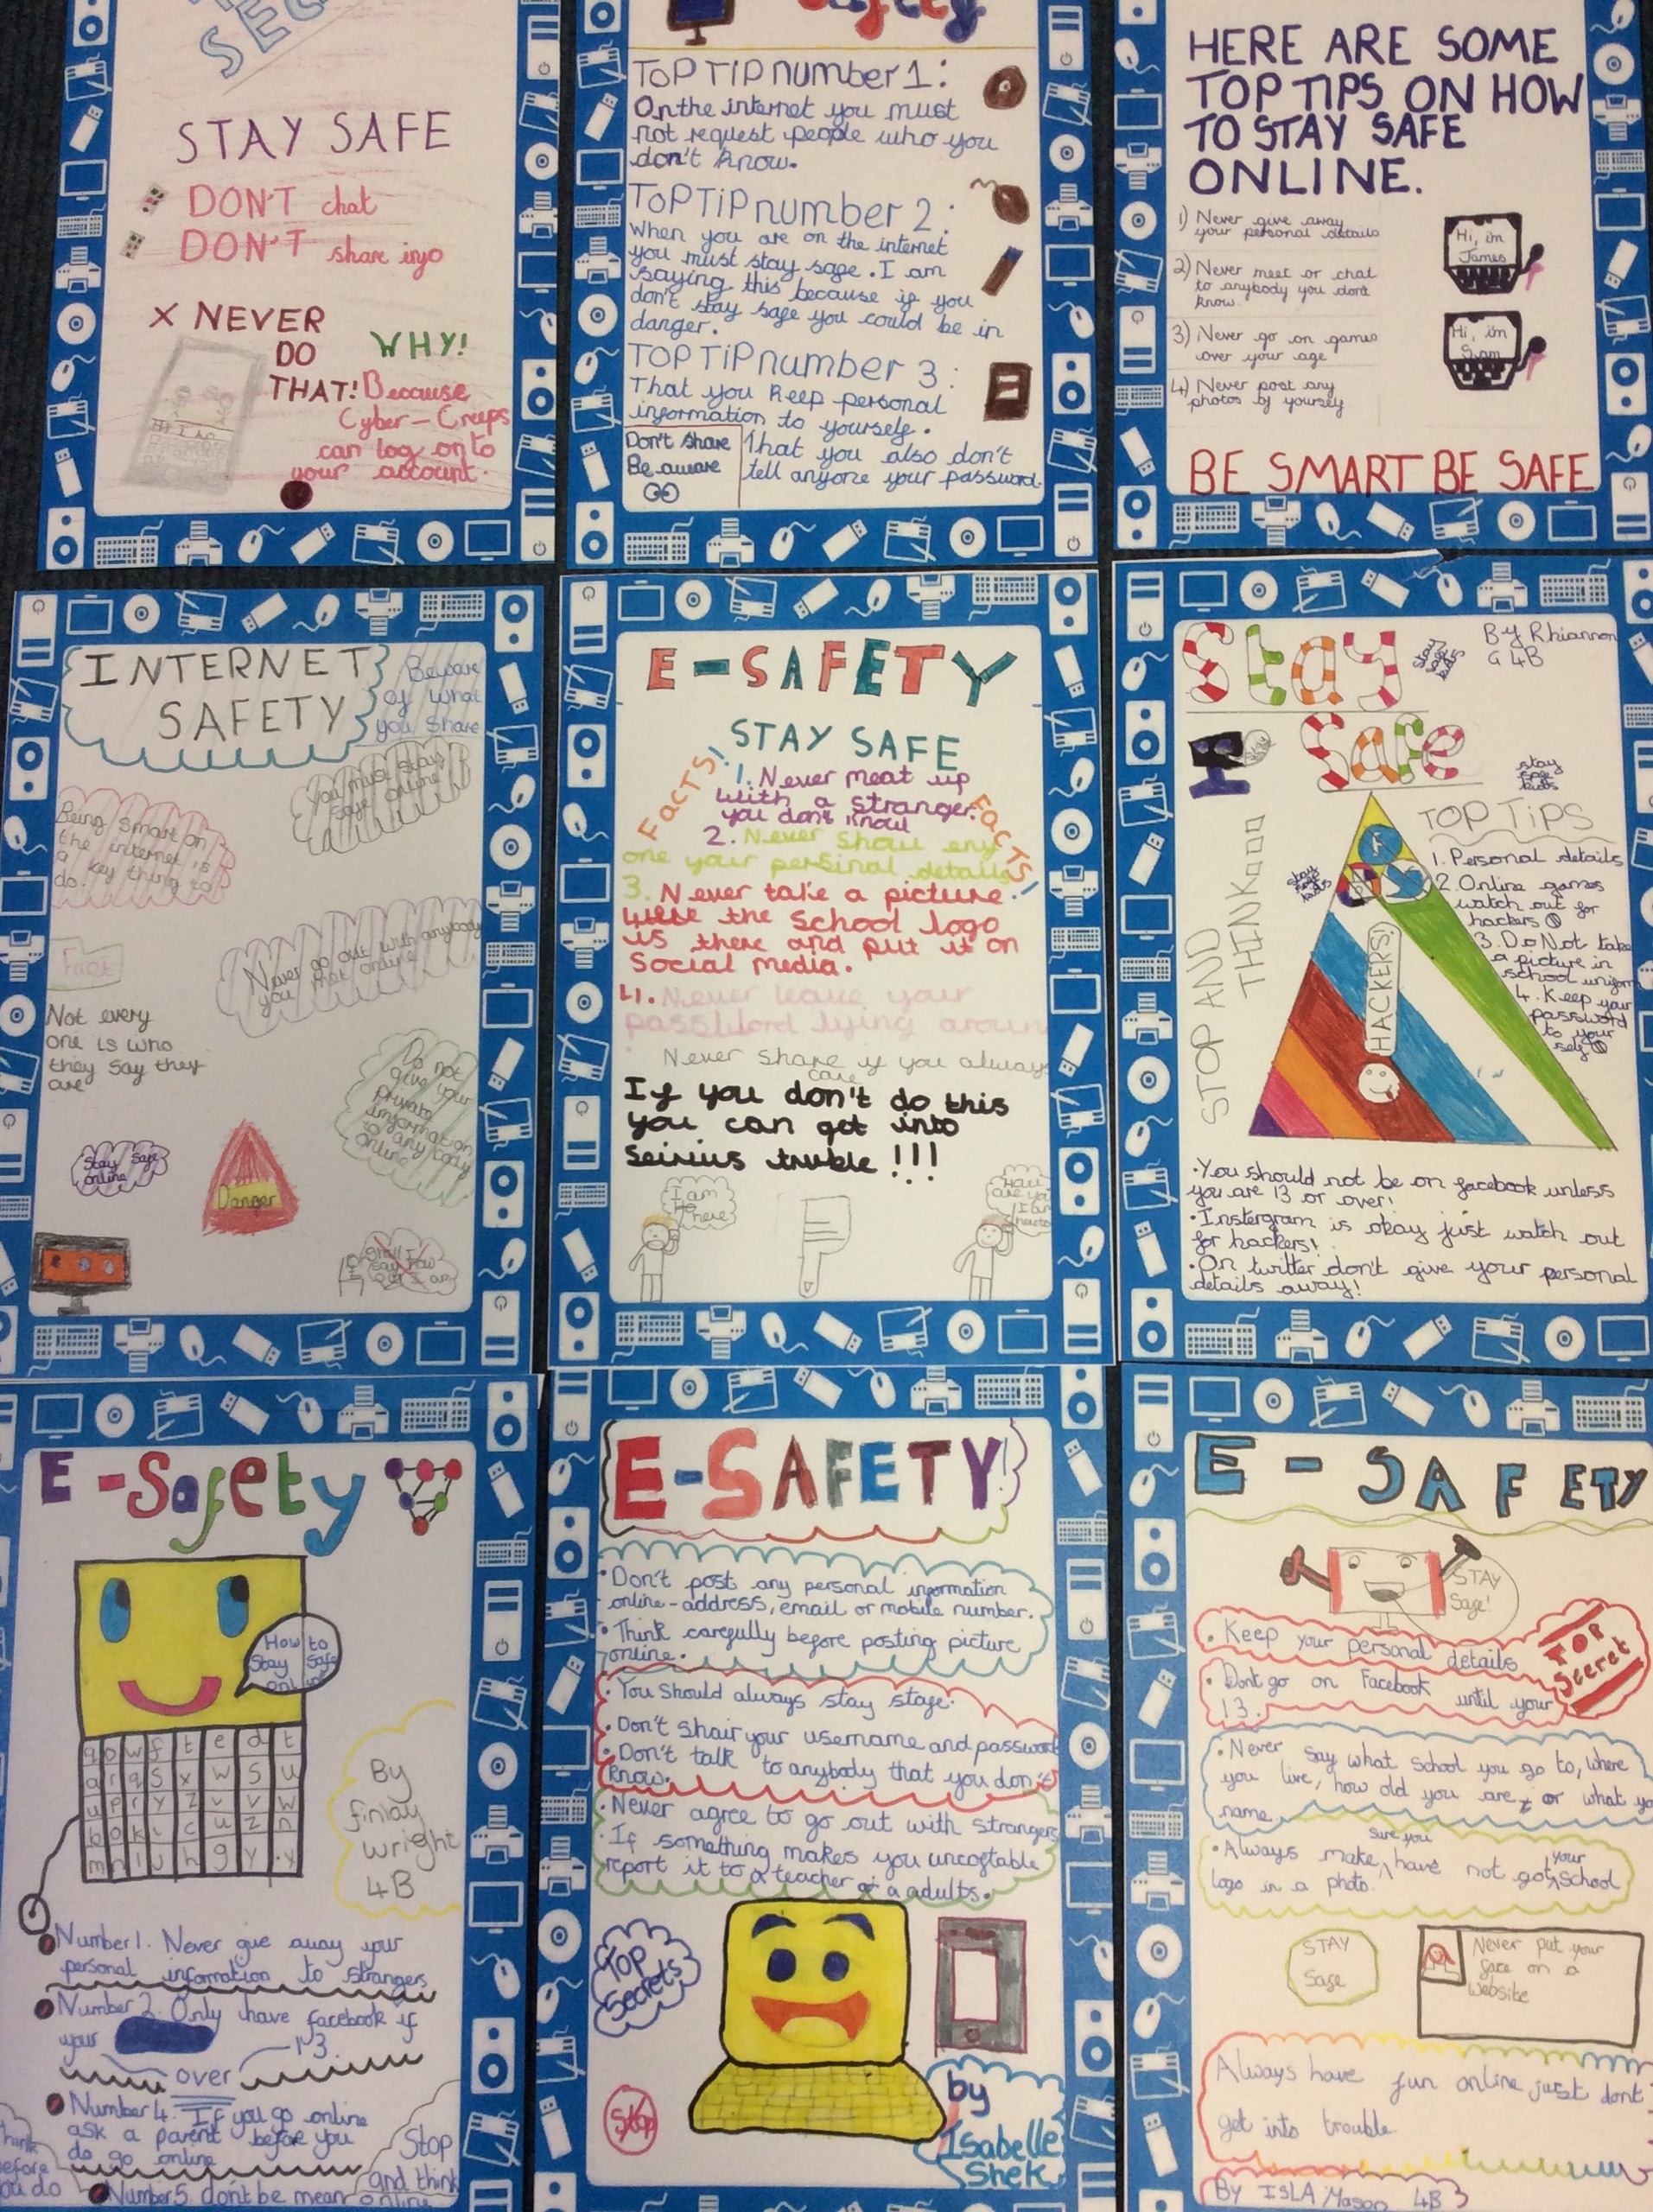 SEC
STAY SAFE
DON'T chat
DON'T share info
X NEVER
DO
THAT!
WHY!
Because
Cyber-Creeps
can log on to
your account.
Safety
TOP TIP number 1:
On the internet you must
not request people who you
don't know.
TOP TIP number 2:
When you are on the internet
you must stay safe. I am
saying this because if you
don't stay safe you could be in
danger.
TOP TIP number 3:
That you keep personal
information to yourself.
Don't share
Be aware
That you also don't
tell anyone your password.
HERE ARE SOME
TOP TIPS ON HOW
TO STAY SAFE
ONLINE.
1) Never give away
your personal details
2) Never meet or chat
to anybody you don't
know.
3) Never go on games
over your age
4) Never post any
photos of yourself
Hi, i'm
James
Hi, i'm
Sam
BE SMART BE SAFE
INTERNET
SAFETY
Beware
of what
you share
You must stay
safe online
Being smart on
the internet is
a key thing to
do.
Never go out with anybody
you meet online
Fact
Not every
one is who
they say they
are
Do not
give your
private
information
to any body
online
Stay safe
online
Danger
E-SAFETY
STAY SAFE
FACTS!
FACTS!
1. Never meat up
with a stranger
you don't know
2. Never show eny
one your persinal details
3. Never take a picture
were the school logo
is there and put it on
Social media.
4. Never leave your
password lying aroun
Never share if you always
care
If you don't do this
you can get into
Seirius truble!!!
I am
here
Stay
Safe
By Rhiannon
G 4B
stay
safe
kids
stay
safe
kids
stay
safe
kids
STOP AND
THINK
HACKERS!
TOP TIPS
1. Personal details
2. Online games
watch out for
hackers
3. Do Not take
a picture in
school uniform
4. Keep your
password
to your
self
•You should not be on facebook unless
you are 13 or over!
•Instergram is okay just watch out
for hackers!
•On twitter don't give your personal
details away!
E-Safety
How to
Stay safe
online
By
finlay
wright
4B
Number 1. Never give away your
personal information to strangers
Number 2. Only have facebook if
your
over
13.
Number 4. If you go online
ask a parent before you
do go online
Number 5. dont be mean online
Think
before
you do
Stop
and think
E-SAFETY!
•Don't post any personal information
online-address, email or mobile number.
•Think carefully before posting picture
online.
•You should always stay stafe.
•Don't shair your username and password
•Don't talk to anybody that you don't
know.
•Never agree to go out with strangers
•If something makes you uncoftable
report it to a teacher or a adults.
Top
Secrets
Stop
by
Isabelle
Shek
E-SAFETY
STAY
Safe!
•Keep your personal details
TOP
Secret
•Dont go on Facebook until your
13.
•Never say what school you go to, where
you live, how old you are, or what yo
name
•Always make sure you have not got your school
logo in a photo.
STAY
Safe
Never put your
face on a
website
Always have fun online just dont
get into trouble.
By ISLA Mason 4B